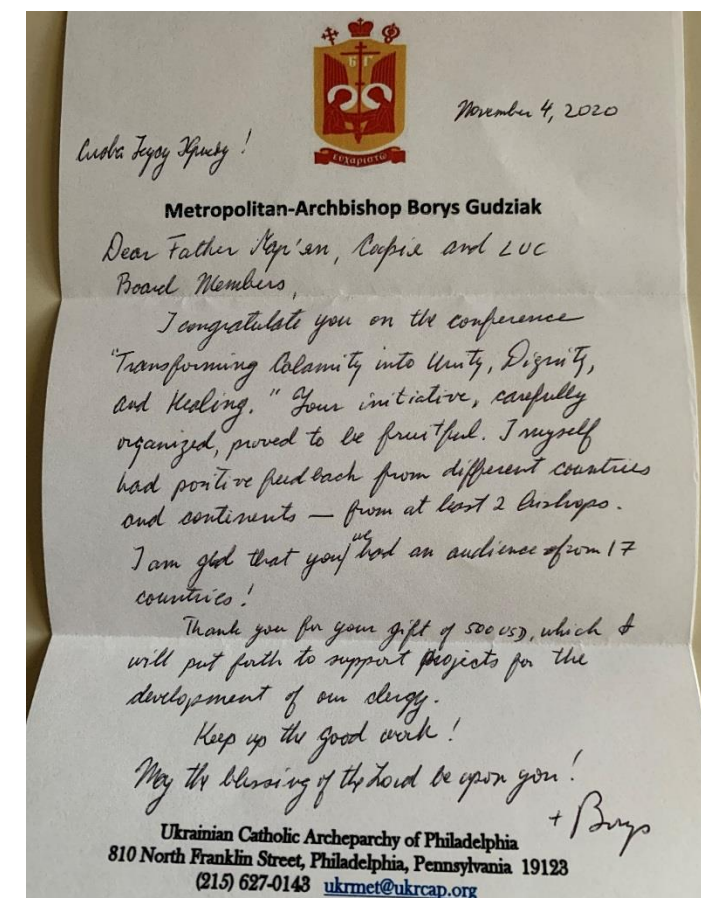 Б Г
November 4, 2020
Слава Ісусу Христу!
εὐχαριστῶ
Metropolitan-Archbishop Borys Gudziak
Dear Father Мар'ян, Софіє and LUC
Board Members,
I congratulate you on the conference
"Transforming Calamity into Unity, Dignity,
and Healing." Your initiative, carefully
organized, proved to be fruitful. I myself
had positive feedback from different countries
and continents — from at least 2 bishops.
I am glad that you've had an audience from 17
countries!
Thank you for your gift of 500 USD, which I
will put forth to support projects for the
development of our clergy.
Keep up the good work!
May the blessing of the Lord be upon you!
+ Borys
Ukrainian Catholic Archeparchy of Philadelphia
810 North Franklin Street, Philadelphia, Pennsylvania 19123
(215) 627-0143 ukrmet@ukrcap.org